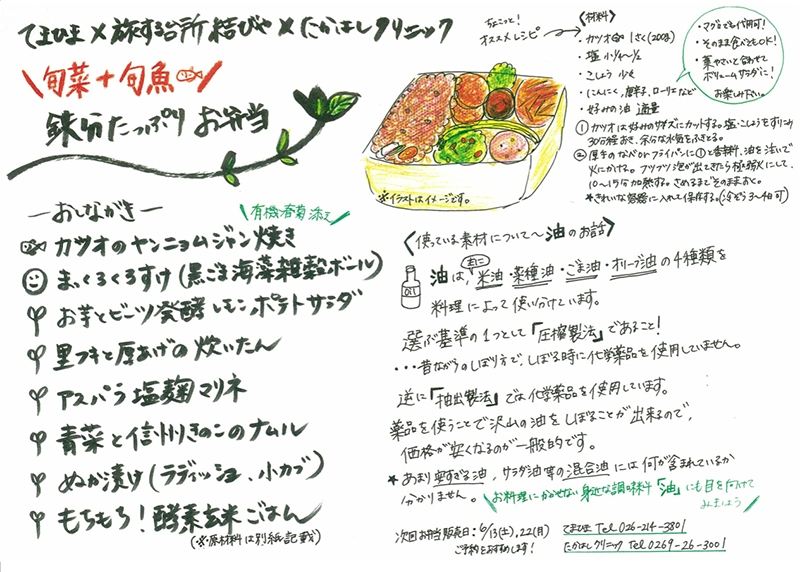 てまひま×旅する台所 結びや×たかはしクリニック
旬菜+旬魚
鉄分たっぷり お弁当
―おしながき―
有機春菊添え
カツオのヤンニョムジャン焼き
まっくろくろすけ(黒ごま海藻雑穀ボール)
お芋とビーツ発酵レモンポテトサラダ
里フキと厚あげの炊いたん
アスパラ塩麹マリネ
青菜と信州きのこのナムル
ぬか漬け(ラディッシュ、小カブ)
もちもち!酵素玄米ごはん
(※原材料は別紙記載)
ちょこっと!
オススメレシピ
《材料》
・カツオ 1さく(200g)
・塩 小1/4〜1/2
・こしょう 少々
・にんにく、唐辛子、ローリエなど
・好みの油 適量
・マグロでも代用可!
・そのまま食べてもOK!
・葉やさいと合わせて
ボリュームサラダに!
お楽しみ下さい。
①カツオは好みのサイズにカットする。塩・こしょうをすりこみ
30分程おき、余分な水気をふきとる。
②厚手のなべorフライパンに①と香辛料、油を注いで
火にかける。フツフツ泡が出てきたら極弱火にして、
10〜15分加熱する。さめるまでそのままおく。
*きれいな容器に入れて保存する。(冷ぞう3〜4日可)
※イラストはイメージです。
〈使っている素材について〜油のお話〉
OIL
油は、主に米油・菜種油・ごま油・オリーブ油の4種類を
料理によって使い分けています。
選ぶ基準の1つとして「圧搾製法」であること!
・・・昔ながらのしぼり方で、しぼる時に化学薬品を使用していません。
逆に「抽出製法」では化学薬品を使用しています。
薬品を使うことで沢山の油をしぼることが出来るので、
価格が安くなるのが一般的です。
*あまり安すぎる油、サラダ油等の混合油には何が含まれているか
分かりません。
お料理にかかせない身近な調味料「油」にも目を向けて
みましょう
次回お弁当販売日:6/13(土)、22(月)
ご予約をおすすめします!
てまひま Tel 026-214-3801
たかはしクリニック Tel 0269-26-3001